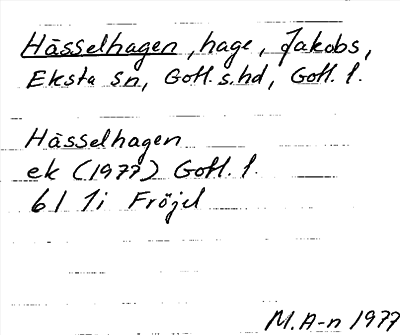 Hässelhagen, hage, Jakobs,
Eksta sn, Gotl. s. hd, Gotl. l.
Hässelhagen
ek (1977) Gotl. l.
6I 1i Fröjel
M. A-n 1977